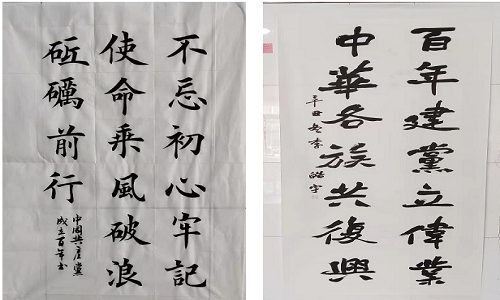 不忘初心牢記
使命乘風破浪
砥礪前行
中國共產黨
成立百年书
百年建黨立偉業
中華各族共復興
辛丑李